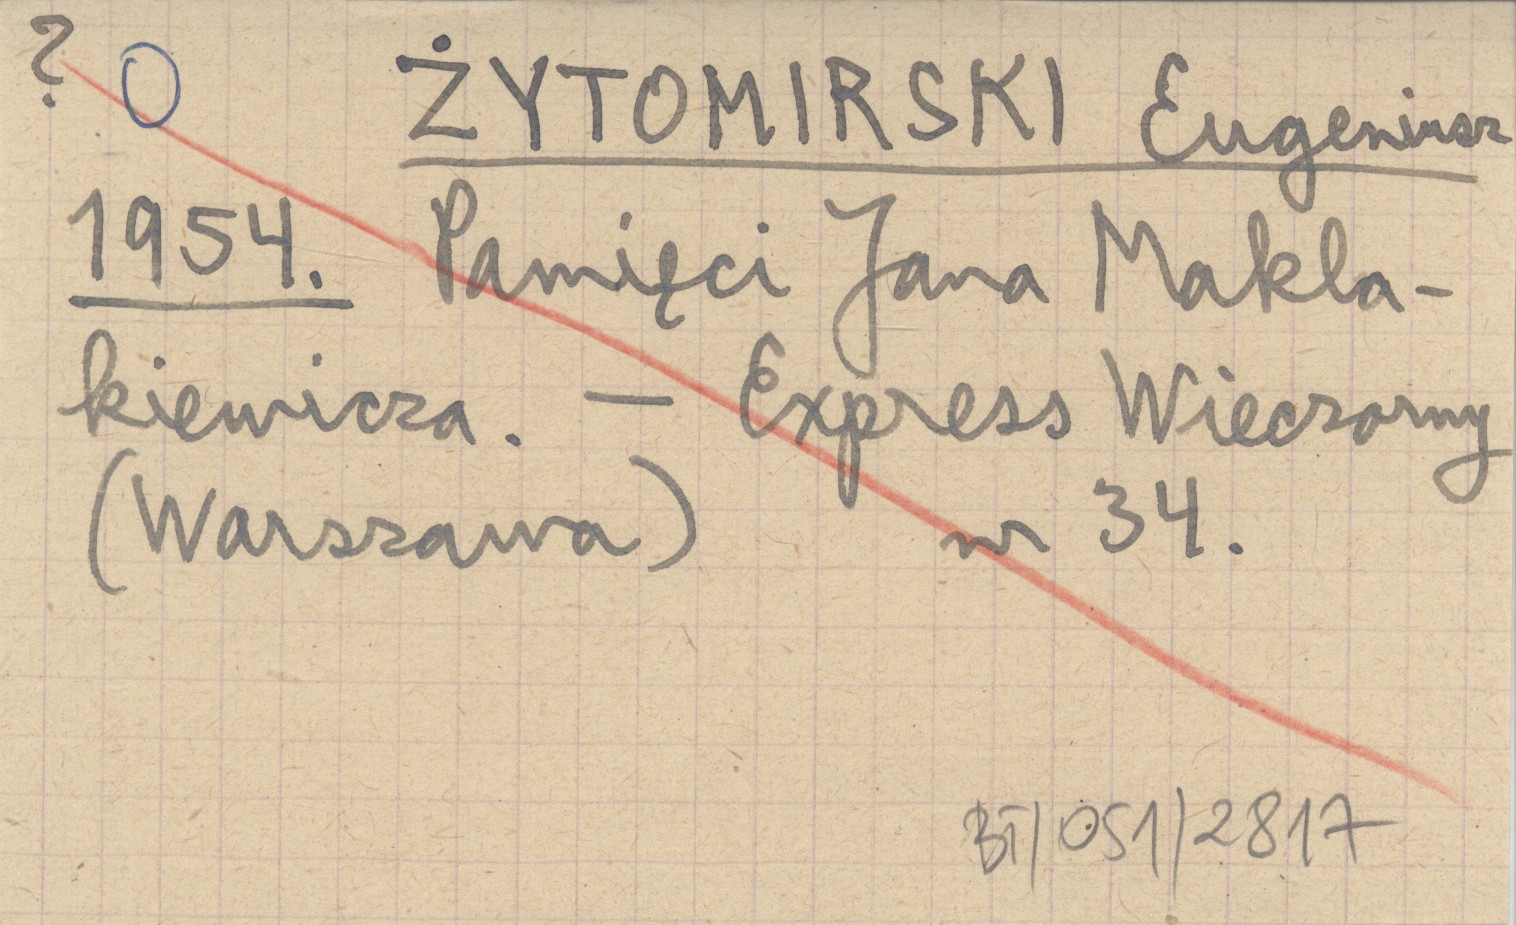 ? O ŻYTOMIRSKI Eugeniusz
1954. Pamięci Jana Makla-
kiewicza. — Express Wieczorny
(Warszawa) nr 34.
BT/051/2817